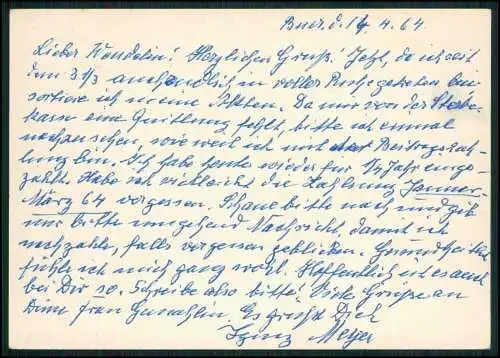 Buer, d. 14. 4. 64
Lieber Wendelin! Herzlichen Gruß! Jetzt, da ich seit
dem 31/3 auch endlich in voller Ruhe getreten bin
sortiere ich meine Akten. Da mir von der Sterbe-
kasse eine Quittung fehlt, bitte ich einmal
nachzusehen, wie weit ich mit der Beitragszah-
lung bin. Ich habe heute wieder für 1/4 Jahr einge-
zahlt. Habe ich vielleicht die Zahlung Januar-
März 64 vergessen. Schaue bitte nach und gib
mir bitte umgehend Nachricht, damit ich
nachzahle, falls vergessen geblieben. Gesundheitlich
fühle ich mich ganz wohl. Hoffentlich ist es auch
bei Dir so. Schreibe also bitte! Viele Grüße an
Deine Frau Gemahlin. Es grüßt Dich
Ignaz Meyer